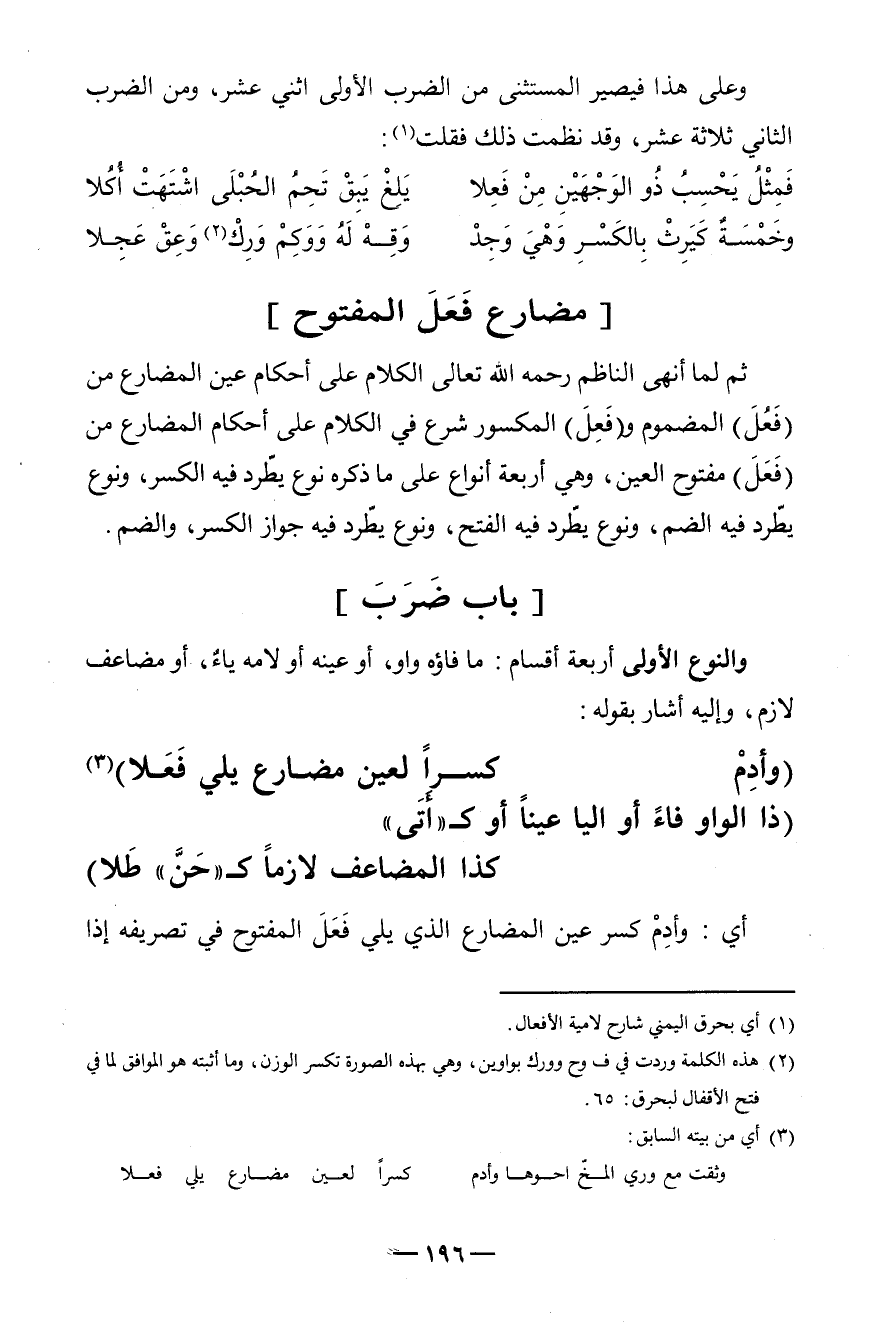 وعلى هذا فيصير المستثنى من الضرب الأولى اثني عشر، ومن الضرب
الثاني ثلاثة عشر، وقد نظمت ذلك فقلت(١):
فَمِثْلُ يَحْسِبُ ذُو الوَجْهَيْنِ مِنْ فَعِلا يَلِغْ يَبِقْ تَحِمُ الحُبْلَى اشْتَهَتْ أُكُلا
وخَمْسَةٌ كَيَرِثْ بِالكَسْرِ وَهْيَ وَجِدْ وَقِهْ لَهُ وَوَكِمْ وَرِكْ(٢) وَعِقْ عَجِلا
[ مضارع فَعَلَ المفتوح ]
ثم لما أنهى الناظم رحمه الله تعالى الكلام على أحكام عين المضارع من
(فَعُلَ) المضموم و(فَعِلَ) المكسور شرع في الكلام على أحكام المضارع من
(فَعَلَ) مفتوح العين، وهي أربعة أنواع على ما ذكره نوع يطّرد فيه الكسر، ونوع
يطّرد فيه الضم، ونوع يطّرد فيه الفتح، ونوع يطّرد فيه جواز الكسر، والضم.
[ باب ضَرَبَ ]
والنوع الأولى أربعة أقسام: ما فاؤه واو، أو عينه أو لامه ياءٌ، أو مضاعف
لازم، وإليه أشار بقوله:
(وأدِمْ كسراً لعين مضارع يلي فَعَلا)(٣)
(ذا الواو فاءً أو اليا عيناً أو كـ«أَتَى»
كذا المضاعف لازماً كـ«حَنَّ» طَلا)
أي: وأدِمْ كسر عين المضارع الذي يلي فَعَلَ المفتوح في تصريفه إذا
(١) أي بحرق اليمني شارح لامية الأفعال.
(٢) هذه الكلمة وردت في ف وح وورك بواوين، وهي بهذه الصورة تكسر الوزن، وما أثبته هو الموافق لما في
فتح الأقفال لبحرق: ٦٥.
(٣) أي من بيته السابق:
وثقت مع وري المخّ احوها وأدم كسراً لعين مضارع يلي فعلا
— ١٩٦ —